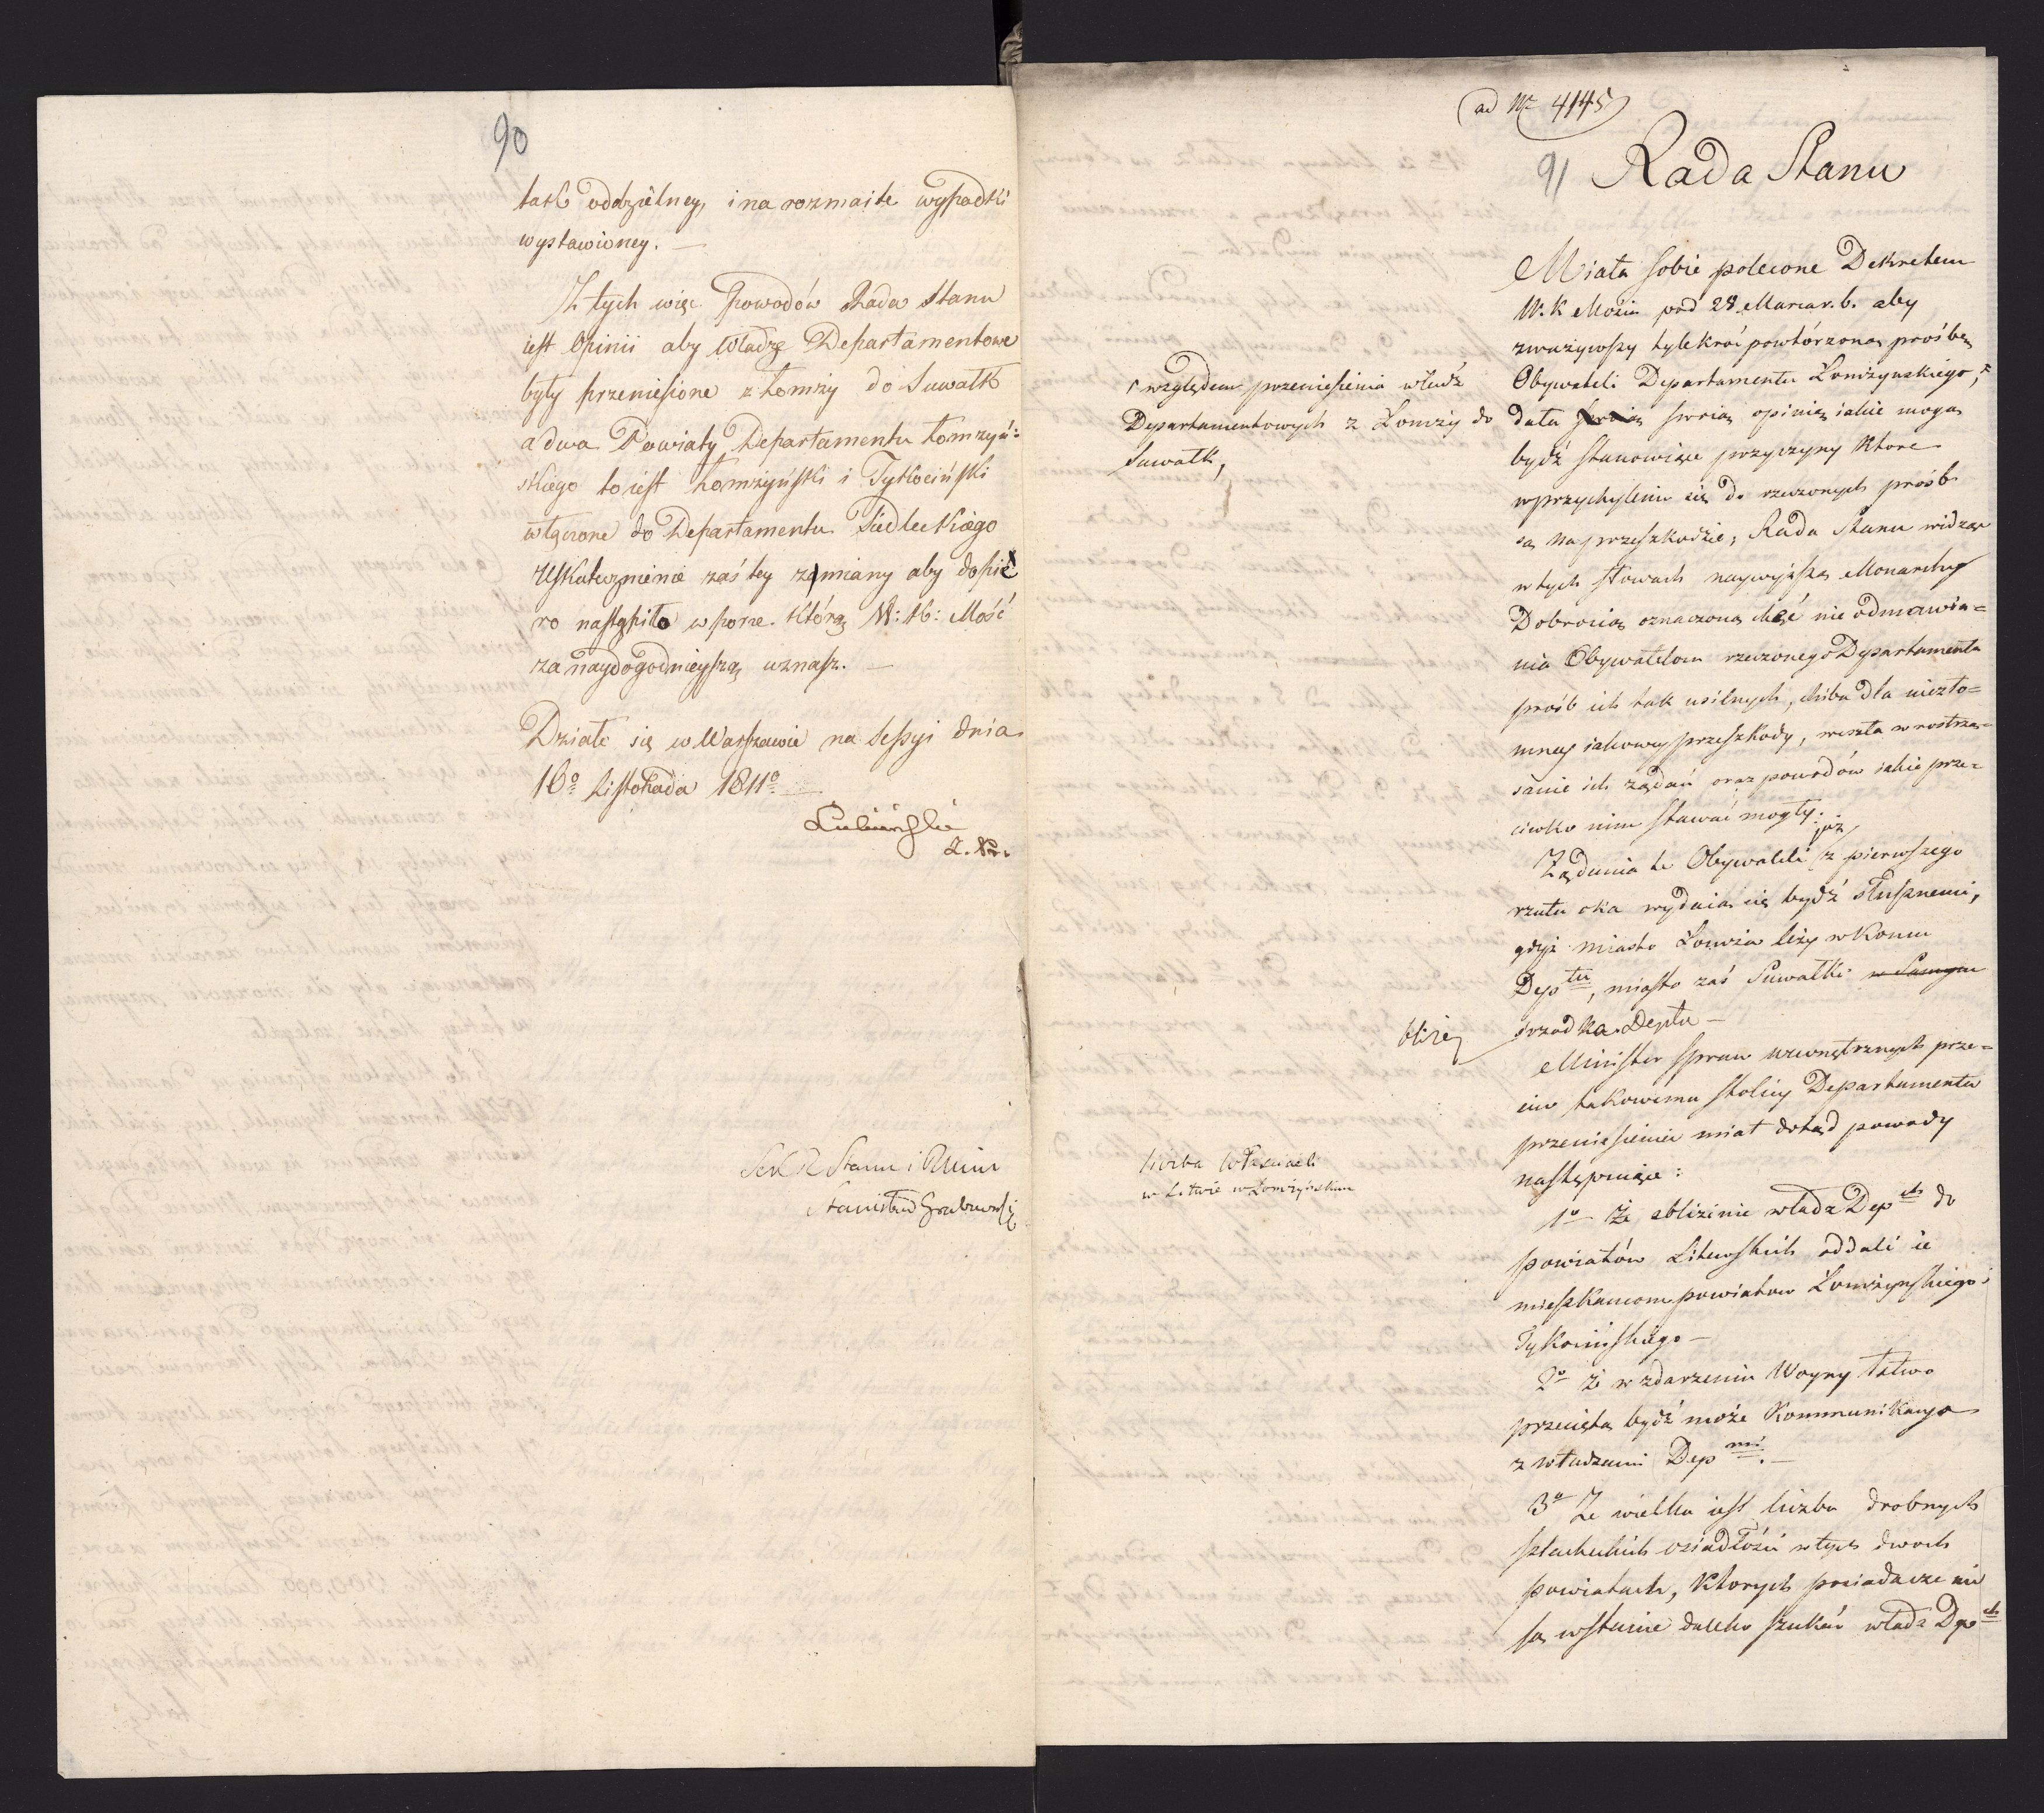 90
tak oddzielney, i na rozmaite wypadki
wystawioney. —
Z tych więc Powodów Rada Stanu
iest Opinii aby Władze Departamentowe
były przeniesione z Łomży do Suwałk
a dwa Powiaty Departamentu Łomżyń:
skiego to iest Łomżyński i Tykociński
włączone do Departamentu Siedleckiego
Uskutecznienie zaś tey zamiany aby dopie
ro nastąpiło w porze którą W: K: Mość
za naydogodnieyszą uznasz. —
Działo się w Warszawie na Sessyi dnia
16º Listopada 1811º
Lubieński
Z. Pr.
Sek R Stanu i RMin
Stanisław Grabowski
ad Nr 4145
91
Rada Stanu
Miała sobie polecone Dekretem
W. K Mości pod 28 Marca r. b. aby
zważywszy tylekroć powtórzoną prośbę
Obywateli Departamentu Łomżynskiego,
względem przeniesienia władz
Departamentowych z Łomży do
Suwałk,
dała swoią opinię iakie mogą
bydź stanowiące przyczyny Ktore
w przychyleniu się do rzeczonych próśb
są na przeszkodzie; Rada Stanu widząc
w tych słowach naywyższą Monarchy
Dobrocią oznaczoną chęć nie odmawia=
nia Obywatelom rzeczonego Departamentu
próśb ich tak usilnych, chiba dla niezło=
mney iakowey przeszkody, weszła w rostrzą=
sanie ich żądań oraz powodów iakie prze=
ciwko nim stawać mogły.
Żądania te Obywateli już z pierwszego
rzutu oka wydaią się bydź słusznemi,
gdyż miasto Łomża leży w Koncu
Dep tu, miasto zaś Suwałki w Samym
bliżey
srzodka Deptu —
Minister Spraw wewnętrznych prze=
ciw takowemu stolicy Departamentu
przeniesieniu miał dotąd powody
następuiące:
1º Że zbliżenie władz Dep ch do
powiatów Litewskich oddali ie
mieszkancom powiatow Łomżynskiego i
Tykocińskiego —
liczba właścicieli
w Litwie w Łomżyńskim
2º że w zdarzeniu Woyny łatwo
przecięta bydź może Kommunikacya
z władzami Dep mi. —
3º Że wielka iest liczba drobnych
szlacheckich osiadłości w tych dwoch
powiatach, Ktorych posiadacze nie
są wstanie daleko szukać władz Dep ch